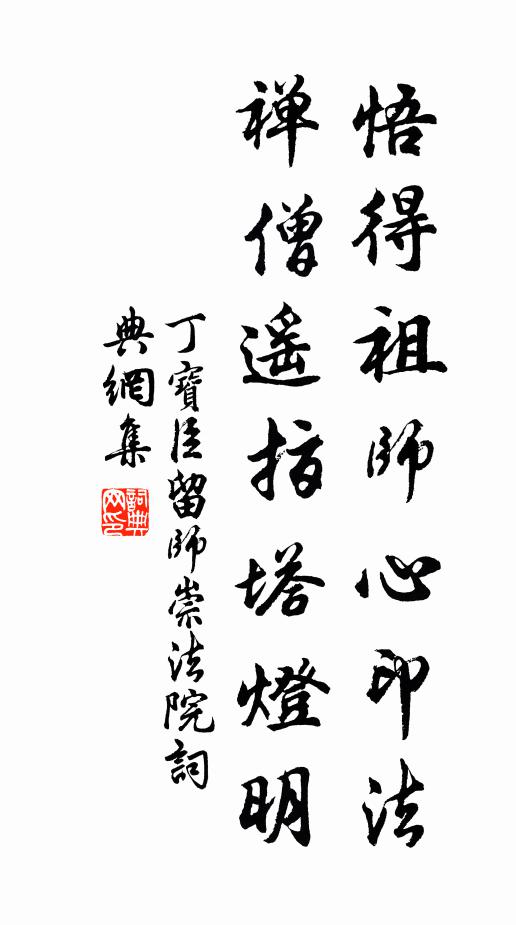 悟得祖師心印法
禪僧遥指塔燈明
丁寶臣留師崇法院詞
典網集
詞典网印